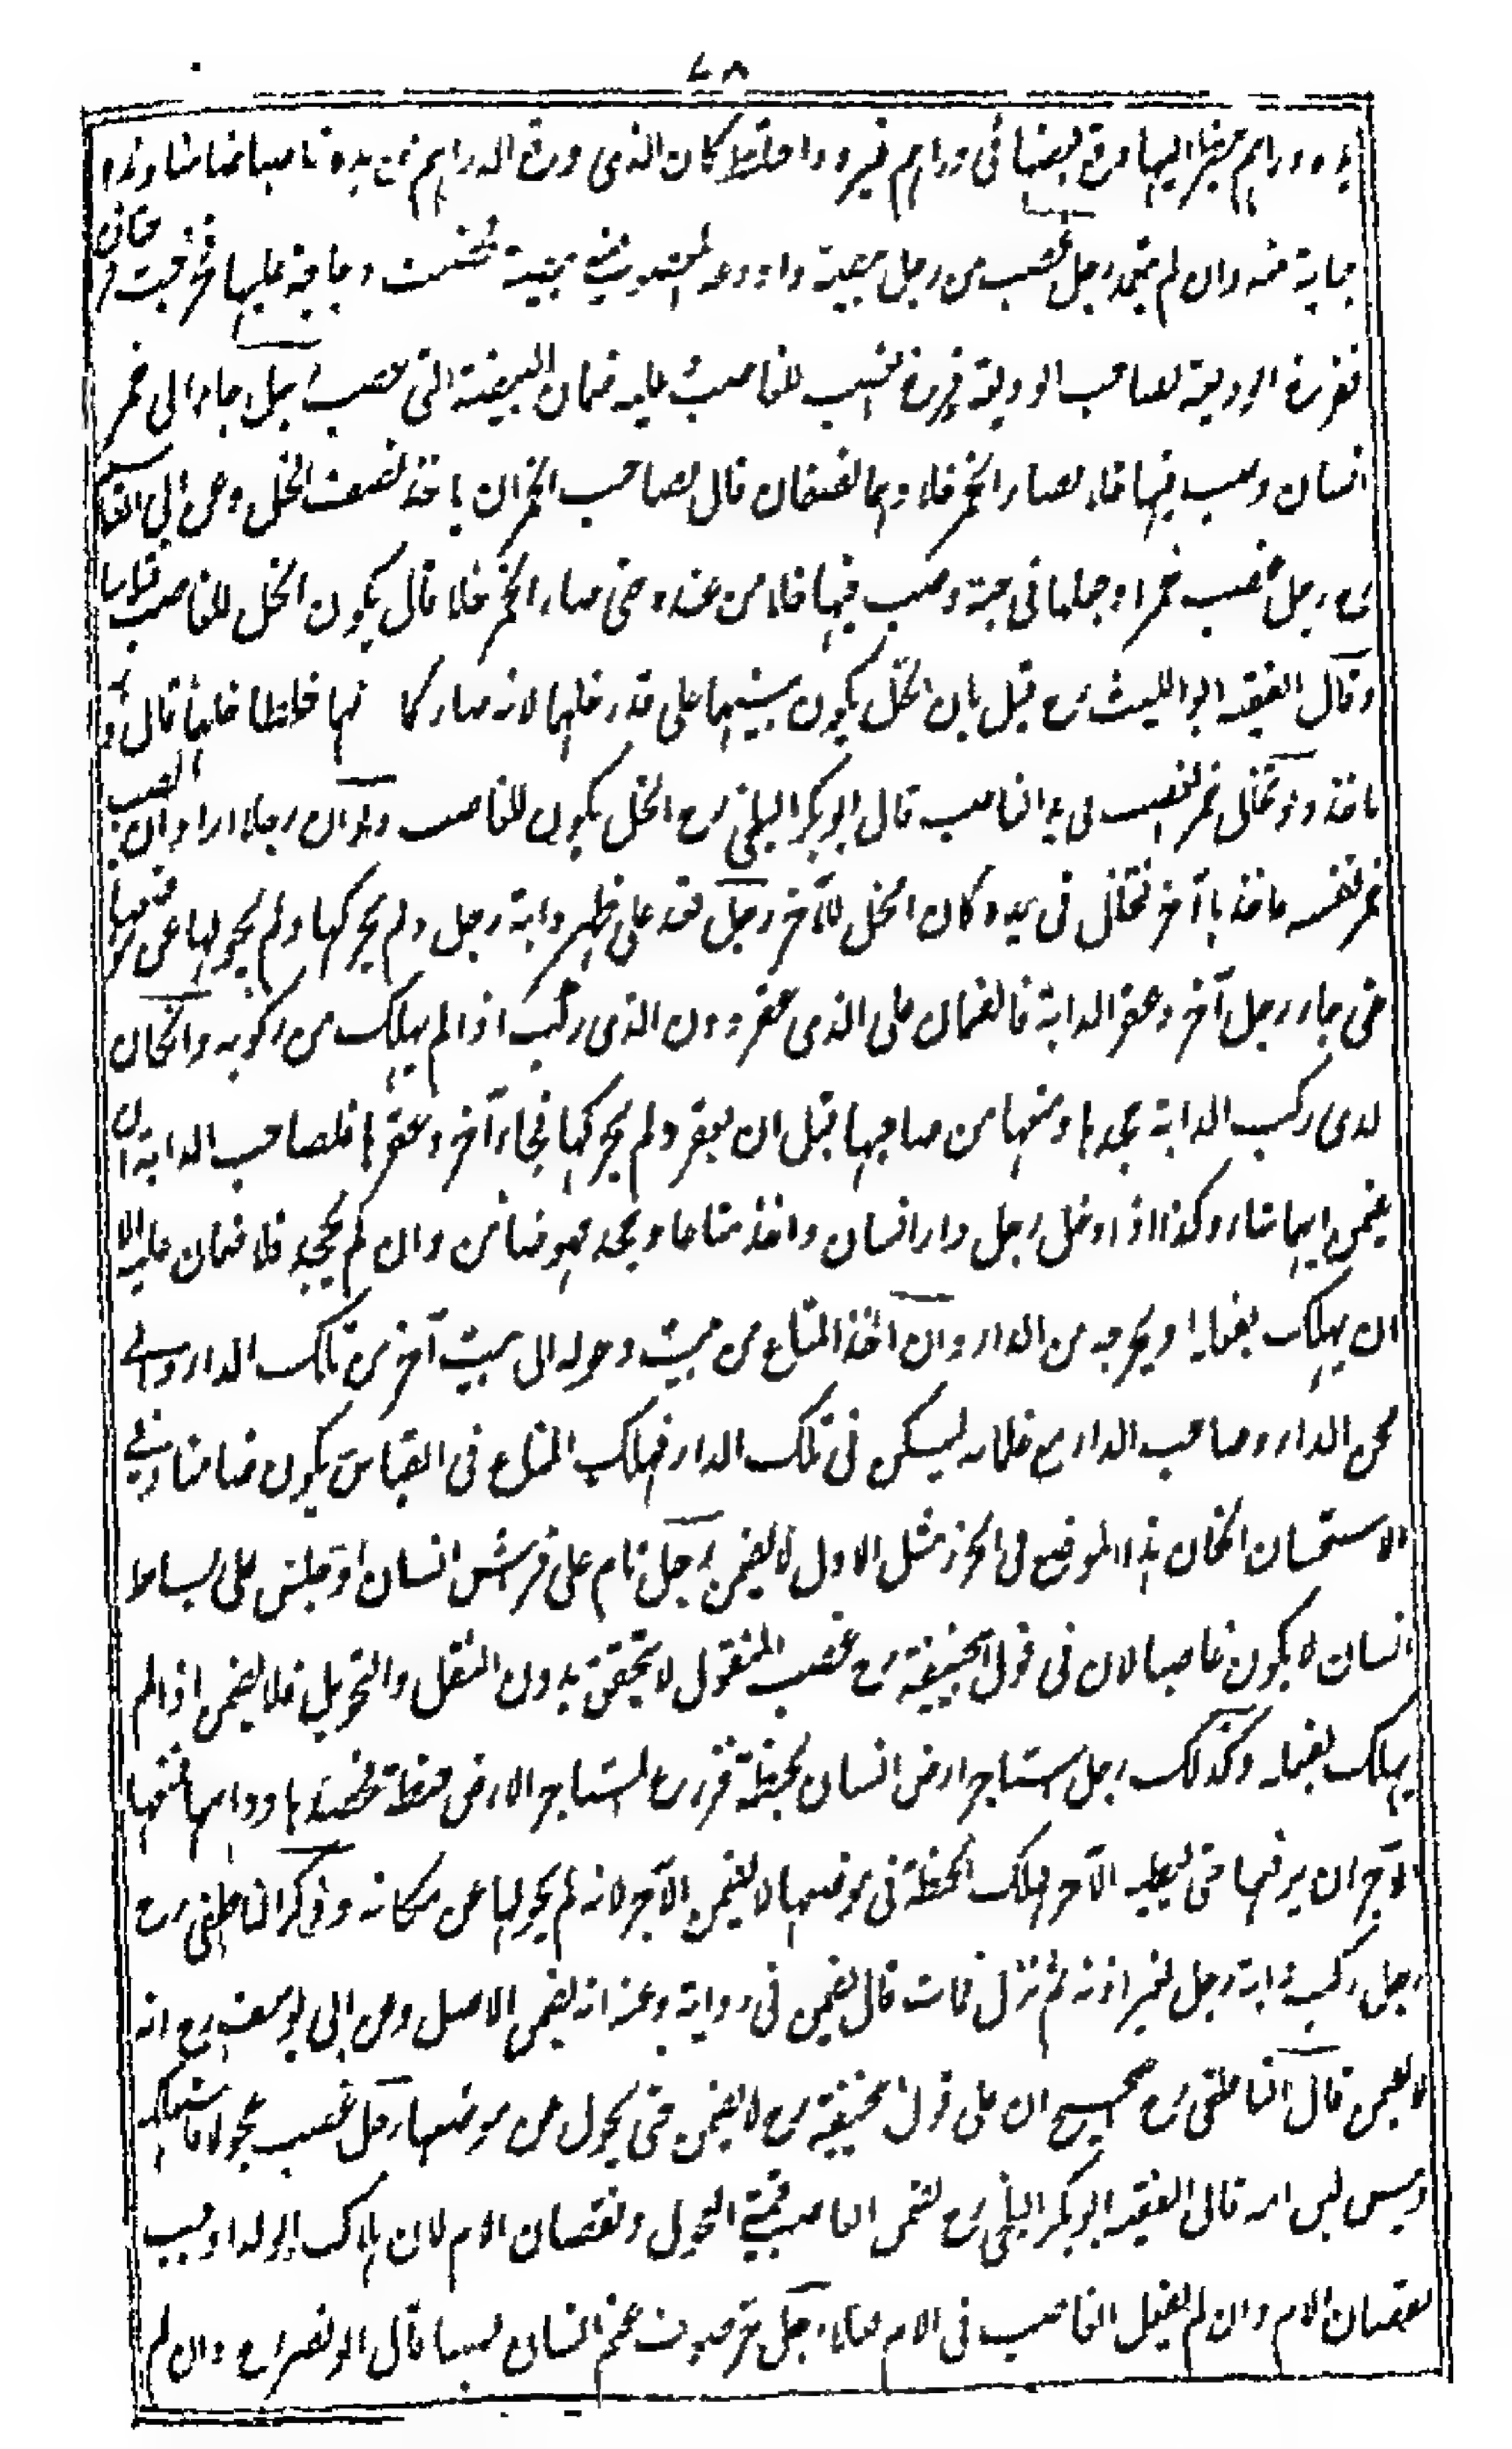 ٧٨
يده دراهم ينظر اليها وقع بعضها فى دراهم غيره واختلط كان الذى وقع الدراهم من يده غاصبا ضامنا وهذه
جناية منه وان لم يتعمد رجل غصب من رجل بيضة واودعه المغصوب منه بيضة فحضنت دجاجة عليها فخرجت فرختان
ففرخة الوديعة لصاحب الوديعة وفرخة الغصب للغاصب وعليه ضمان البيضة التى غصب رجل جاء الى خمر
انسان وصب فيها خلا فصار الخمر خلا وهما نصفان قال لصاحب الخمر ان ياخذ نصف الخل وعن ابى القاسم
رح رجل غصب خمرا وجعلها فى جبة وصب فيها خلا من عنده حتى صار الخمر خلا قال يكون الخل للغاصب قياسا
وقال الفقيه ابو الليث رح قيل بان الخل يكون بينهما على قدر خلهما لانه صار كانهما خلطا خلهما قال وبه
ناخذ ولو تخلل خمر الغصب فى يد الغاصب قال ابو بكر البلخى رح الخل يكون للغاصب ولو ان رجلا اراد ان يصب
خمر نفسه فاخذها آخر فتخلل فى يده كان الخل للآخر رجل قعد على ظهر دابة رجل ولم يحركها ولم يحولها عن موضعها
حتى جاء رجل آخر وعقر الدابة فالضمان على الذى عقر دون الذى ركب اذا لم يهلك من ركوبه وان كان
الذى ركب الدابة جحدها ومنعها من صاحبها قبل ان يعقر ولم يحركها فجاء آخر وعقرها فلصاحب الدابة ان
يضمن ايهما شاء وكذا اذا دخل رجل دار انسان واخذ متاعا وجحد فهو ضامن وان لم يجحد فلا ضمان عليه الا
ان يهلك بفعله او يخرجه من الدار وان اخذ المتاع من بيت وحوله الى بيت آخر من تلك الدار او الى
صحن الدار وصاحب الدار مع غلمانه يسكن فى تلك الدار فهلك المتاع فى القياس يكون ضامنا وفى
الاستحسان ان كان هذا الموضع فى الحرز مثل الاول لا يضمن رجل نام على فرش انسان او جلس على بساط
انسان لا يكون غاصبا لان فى قول ابى حنيفة رح غصب المنقول لا يتحقق بدون النقل والتحويل فلا يضمن اذا لم
يهلك بفعله وكذلك رجل استاجر ارض انسان بحنطة فزرع المستاجر الارض حنطة فحصدها وداسها فمنعها
الآجر ان يرفعها حتى يعطيه الآجر فهلك الحنطة فى موضعها لا يضمن الآجر لانه لم يحولها عن مكانه وذكر الناطفى رح
رجل ركب دابة رجل بغير اذنه ثم نزل فماتت قال يضمن فى رواية وعنه انه يضمن الاصل وعن ابى يوسف رح انه
لا يضمن قال الناطفى رح الصحيح ان على قول ابى حنيفة رح لا يضمن حتى يحول عن موضعها رجل غصب عجولا فاستهلكه
ويبس لبن امه قال الفقيه ابو بكر البلخى رح يضمن الغاصب قيمة العجول ونقصان الام لان هلاك الولد اوجب
نقصان الام وان لم يفعل الغاصب فى الام فعلا رجل جز صوف غنم انسان غصبا قال ابو نصر رح وان لم